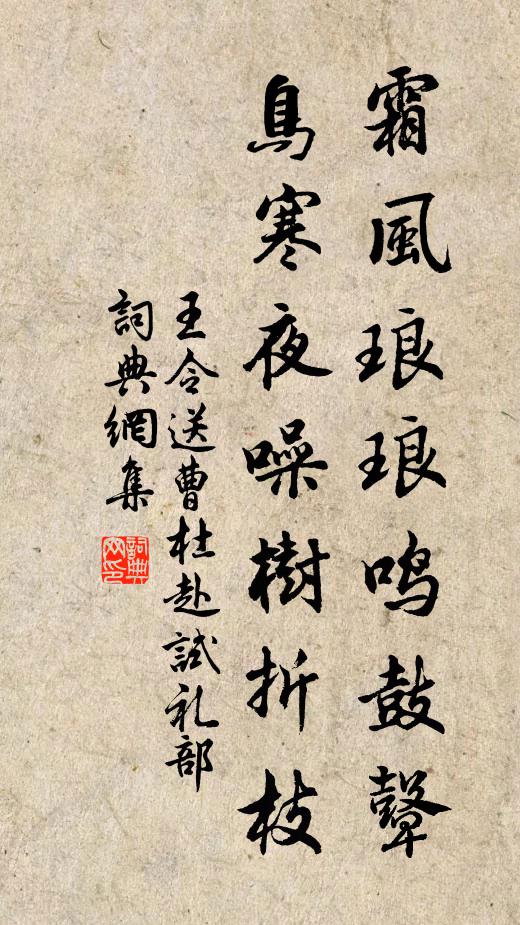 霜風琅琅鸣鼓鼙
烏寒夜噪樹折枝
王令送曹杜赴試礼部
詞典網集
詞典网印